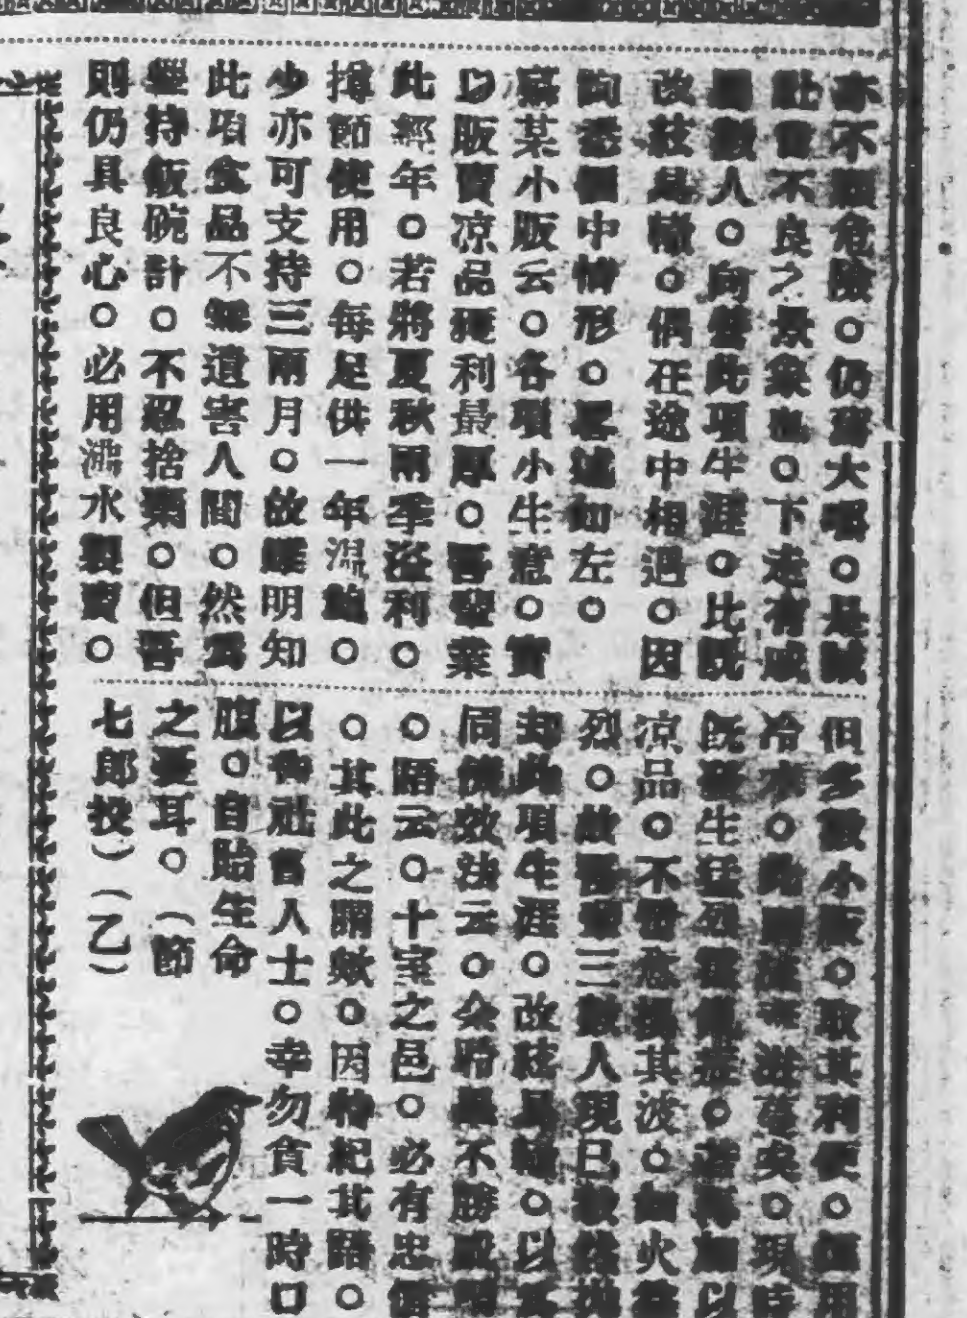 亦不顧危險○仍舊大喝○是誠
社會不良之景象也○下走有戚
屬數人○向營此項生涯○比既
改絃易轍○偶在途中相遇○因
詢悉個中情形○畧述如左○
某小販云○各項小生意○實
以販賣凉品獲利最厚○吾輩業
此經年○若將夏秋兩季溢利○
撙節使用○每足供一年温飽○
少亦可支持三兩月○故雖明知
此項食品不無遺害人間○然爲
維持飯碗計○不忍捨棄○但吾
則仍具良心○必用沸水製賣○
但多數小販○取其利便○用
冷水○此矣○現時
既生症○若再加以
凉品○不啻其波○如火
烈○故吾輩三數人現已
却此項生涯○改絃易轍○以爲
同儕效法云○余聆畢不勝
○語云○十室之邑○必有忠信
○其此之謂歟○因特紀其語○
以告社會人士○幸勿貪一時口
腹○自貽生命
之憂耳○（節
七郎投）（乙）